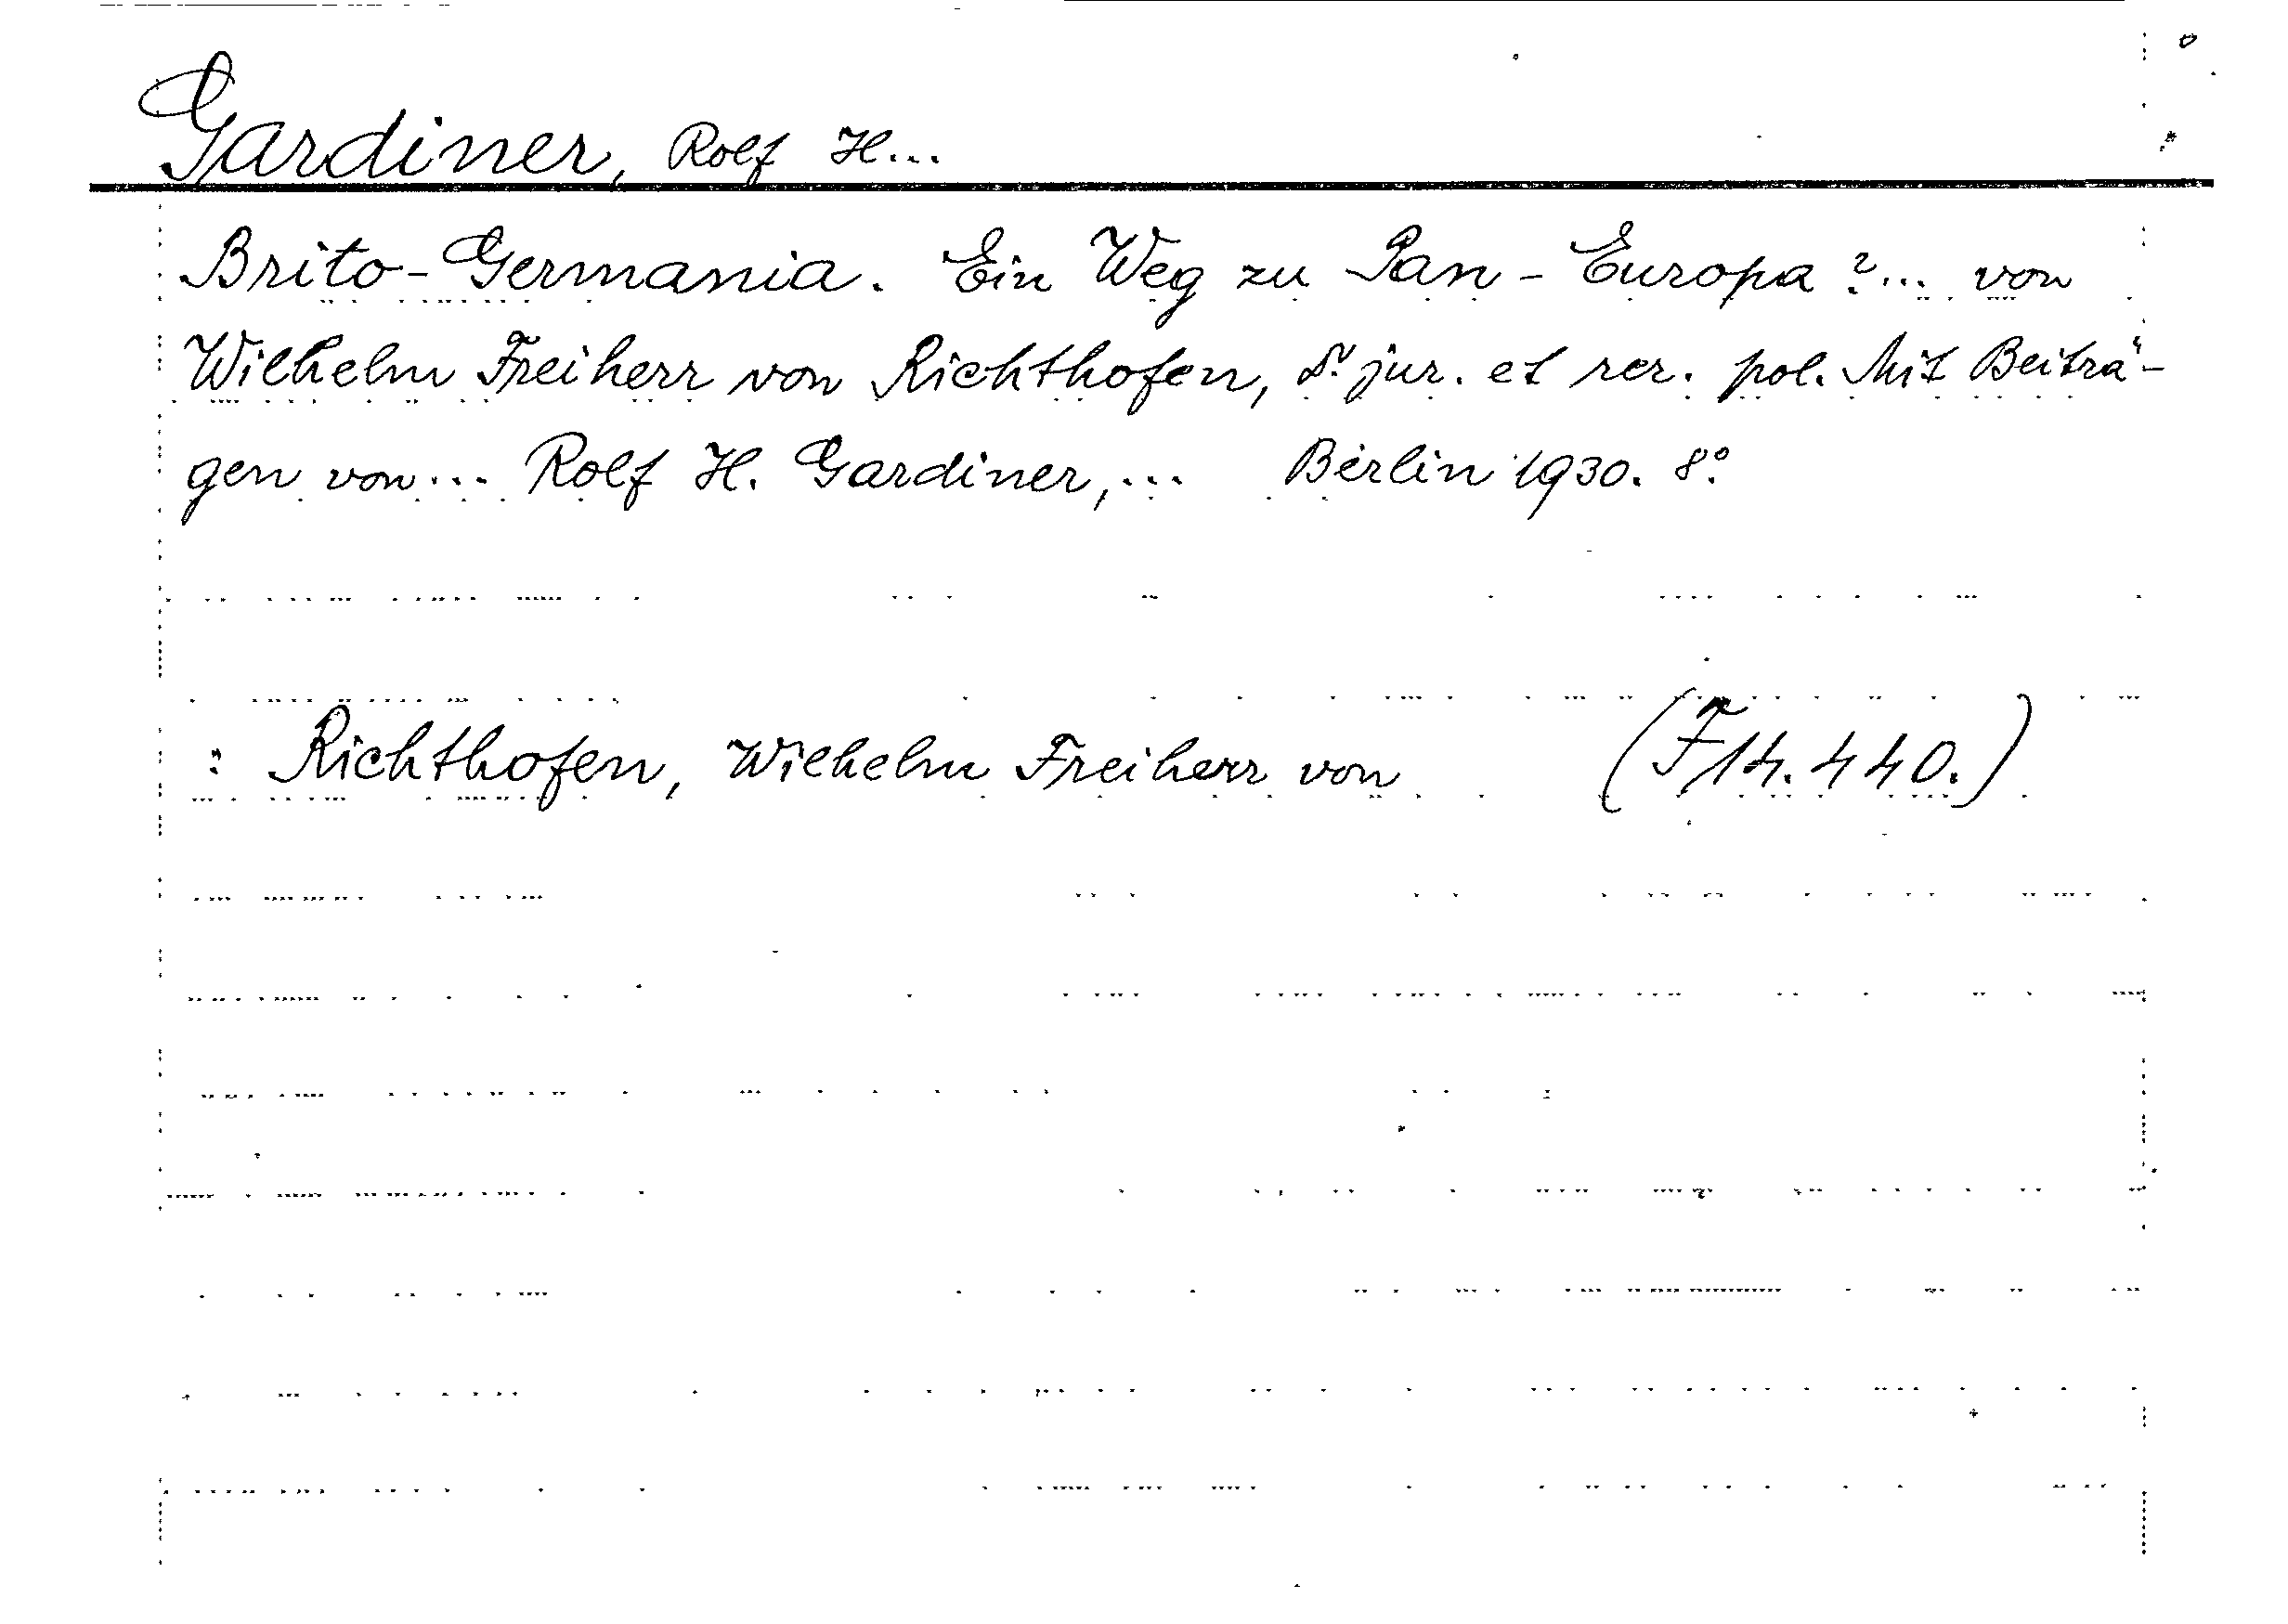 Gardiner, Rolf H...
Brito-Germania. Ein Weg zu Pan-Europa?... von
Wilhelm Freiherr von Richthofen, Dr. jur. et rer. pol. Mit Beiträ-
gen von... Rolf H. Gardiner,... Berlin 1930. 8°.
: Richthofen, Wilhelm Freiherr von (F14.440.)